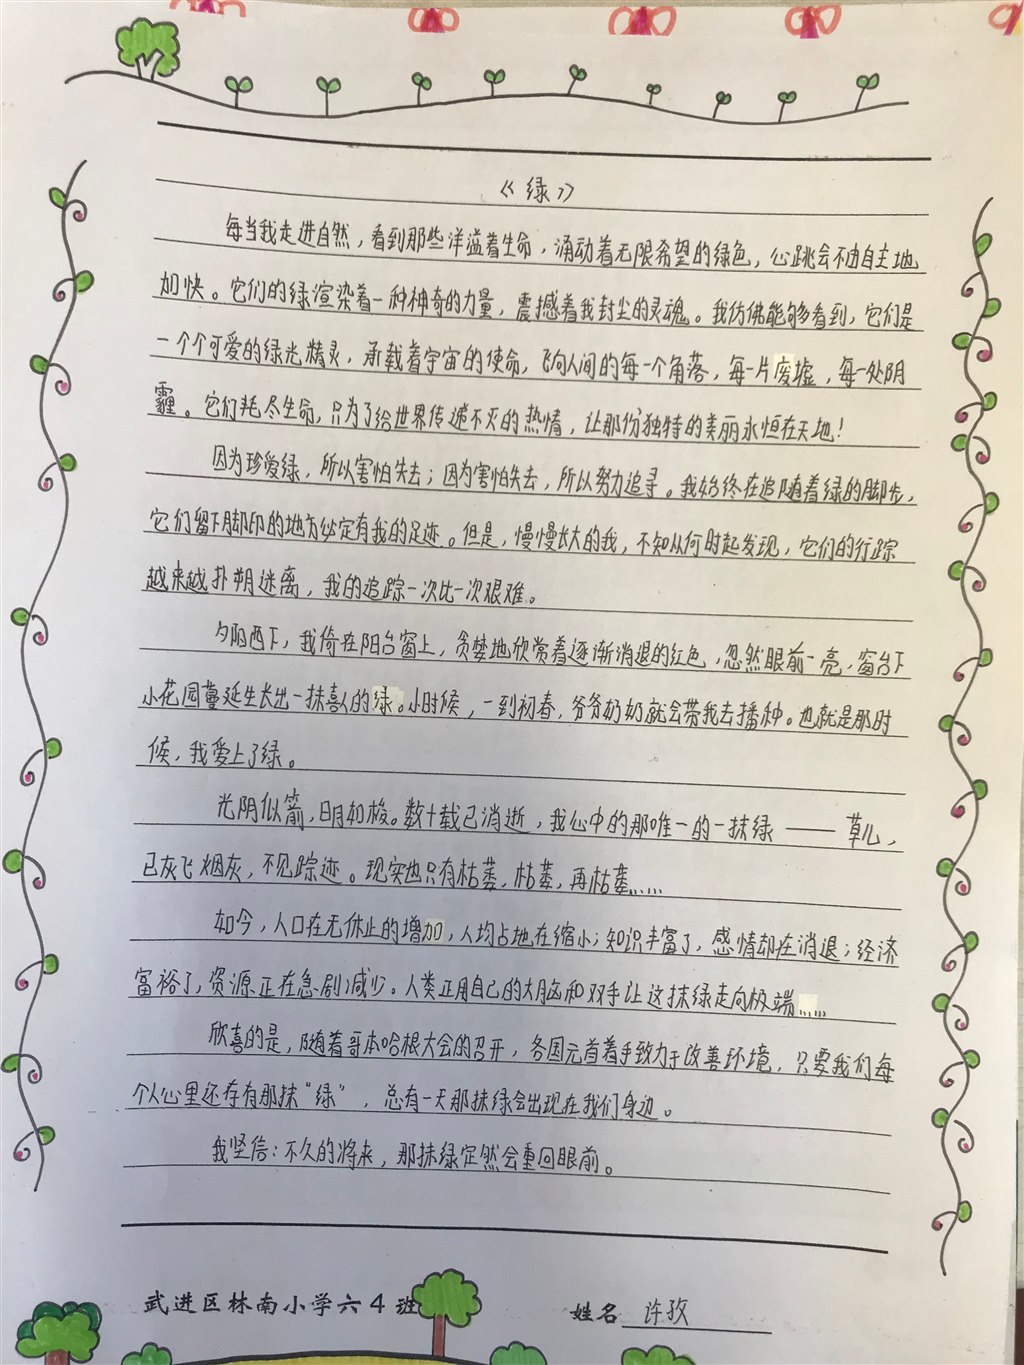 《绿》
每当我走进自然，看到那些洋溢着生命，涌动着无限希望的绿色，心跳会不由自主地
加快。它们的绿渲染着一种神奇的力量，震撼着我封尘的灵魂。我仿佛能够看到，它们是
一个个可爱的绿光精灵，承载着宇宙的使命，飞向人间的每一个角落，每一片废墟，每一处阴
霾。它们耗尽生命，只为了给世界传递不灭的热情，让那份独特的美丽永恒在天地！
因为珍爱绿，所以害怕失去；因为害怕失去，所以努力追寻。我始终在追随着绿的脚步，
它们留下脚印的地方必定有我的足迹。但是，慢慢长大的我，不知从何时起发现，它们的行踪
越来越扑朔迷离，我的追踪一次比一次艰难。
夕阳西下，我倚在阳台窗上，贪婪地欣赏着逐渐消退的红色，忽然眼前一亮，窗台下
小花园蔓延生长出一抹喜人的绿。小时候，一到初春，爷爷奶奶就会带我去播种。也就是那时
候，我爱上了绿。
光阴似箭，日月如梭。数十载已消逝，我心中的那唯一的一抹绿——草儿，
已灰飞烟灰，不见踪迹。现实也只有枯萎，枯萎，再枯萎……
如今，人口在无休止的增加，人均占地在缩小；知识丰富了，感情却在消退；经济
富裕了，资源正在急剧减少。人类正用自己的大脑和双手让这抹绿走向极端……
欣喜的是，随着哥本哈根大会的召开，各国元首着手致力于改善环境，只要我们每
个人心里还存有那抹“绿”，总有一天那抹绿会出现在我们身边。
我坚信：不久的将来，那抹绿定然会重回眼前。
武进区林南小学六4班 姓名 许孜